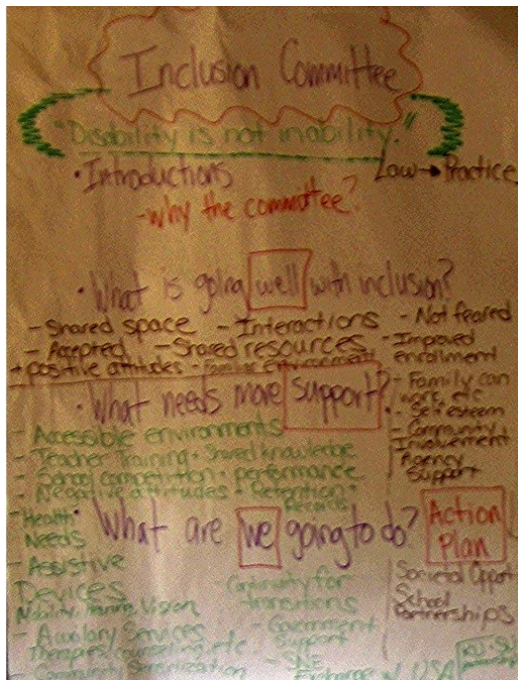 Inclusion Committee
"Disability is not inability."
• Introductions
Law → Practice
- why the committee?
• What is going well with inclusion?
- Shared space - Interactions - Not feared
- Accepted - Shared resources - Improved enrollment
+ positive attitudes - Familiar environment
- Family can work, etc
- Self esteem
- Community Involvement
Agency Support
• What needs more support?
- Accessible environments
- Teacher Training • Shared knowledge
- School competition • performance
- Negative attitudes • Retention •
Records
- Health Needs
• What are we going to do? Action Plan
- Assistive Devices
Mobility, Hearing, Vision
- Auxilary Services
Therapies, counseling, etc.
- Community Sensitization
- Continuity for transitions
- Government Support
- SNE Exchange w/ USA
Societal Opport
School Partnerships